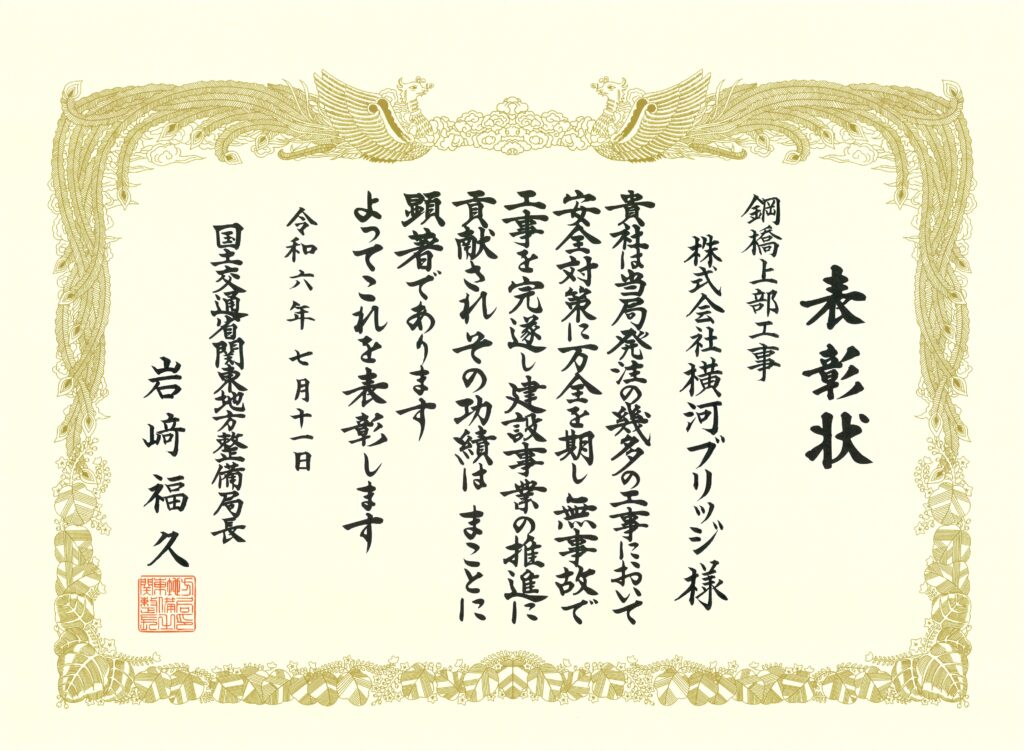 表彰状
鋼橋上部工事
株式会社横河ブリッジ様
貴社は当局発注の幾多の工事において
安全対策に万全を期し無事故で
工事を完遂し建設事業の推進に
貢献されその功績は まことに
顕著であります
よってこれを表彰します
令和六年 七月十一日
国土交通省関東地方整備局長
岩﨑福久